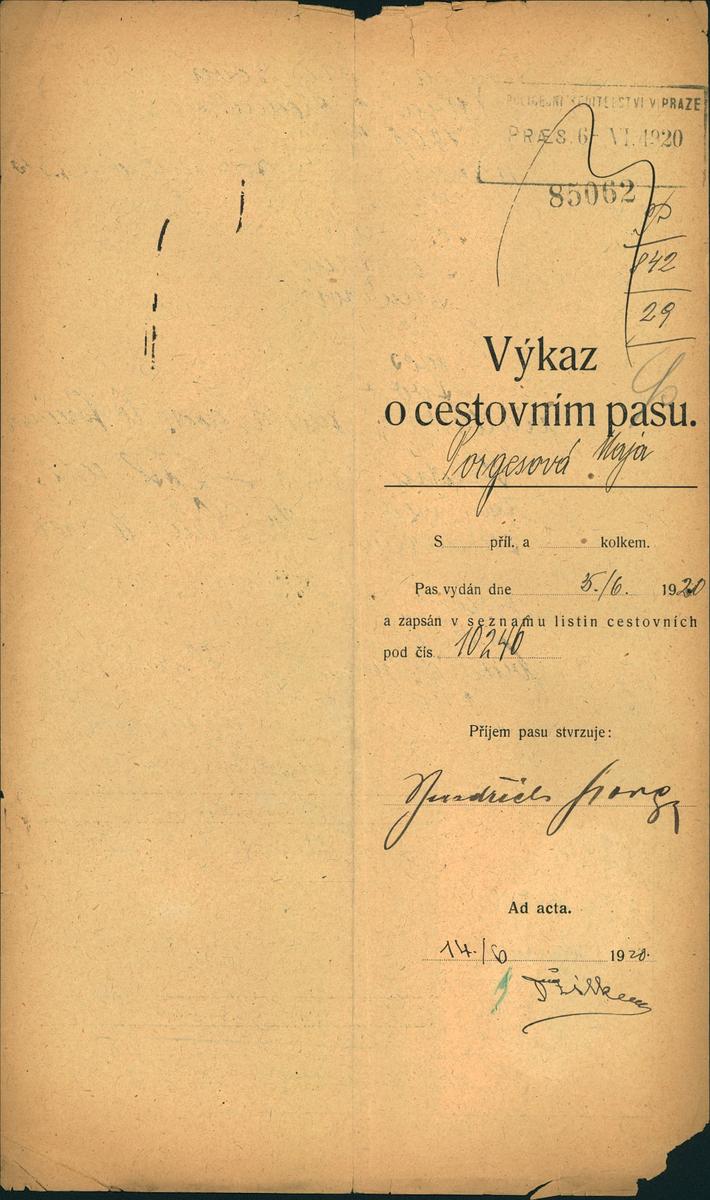 POLICEJNÍ ŘEDITELSTVÍ V PRAZE
PRÆS. 6- VI. 1920
85062
842
29
Výkaz
o cestovním pasu.
Porgesová Maja
S příl. a kolkem.
Pas vydán dne 5./6. 1920
a zapsán v seznamu listin cestovních
pod čís 10240
Příjem pasu stvrzuje:
Jindřich Porges
Ad acta.
14./6 1920.